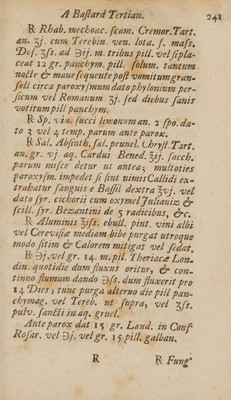 A Bastard Tertian. 241
℞ Rhab. mechoac. scam. Cremor. Tart.
an. ʒj. cum Terebin ven. lota. f. mass.
Dos. ʒss. ad ℈ij. m tribus pill. vel si pla-
ceat 12 gr. panchym. pill. solum. tantum
nocte & mane sequente post vomitum gran-
sell circa paroxysmum dato phylonium per-
sicum vel Romanum ʒj. sed diebus sanis
votitum pill panchym.
℞ Sp. vin. succi limonum an. 2 spo. da-
to 2 vel 4 temp. parum ante parox.
℞ Sal. Absinth. sal. prunel. Chryst. Tart.
an. gr. vj aq. Cardui Bened. ℥ij. sacch.
parum misce detur ut antea; multoties
paroxysm. impedet si sint nimis Callidi ex-
trahatur sanguis e Bassil dextra ℥vj. vel
dato syr. cichorii cum oxymel Julianiz &
scill. syr. Bezantini de 5 radicibus, &c.
℞ Aluminis ʒss. ebull. pint. vini albi
vel Cerevisiæ mediam bibe purgat utroque
modo sitim & Calorem mitigat vel sedat.
℞ ℈j. vel gr. 14. m. pil. Theriacæ Lon-
din. quotidie dum fluxus oritur, & con-
tinno flumum dando ℈ss. dum fluxerit pro
14 Dies; tunc purga alterno die pill pan-
chymag. vel Tereb. ut supra, vel ʒss.
pulv. sancti in aq. gruel.
Ante parox dat 15 gr. Laud. in Conf
Rosar. vel ℈j. vel gr. 15 pill. galban.
R ℞ Fung